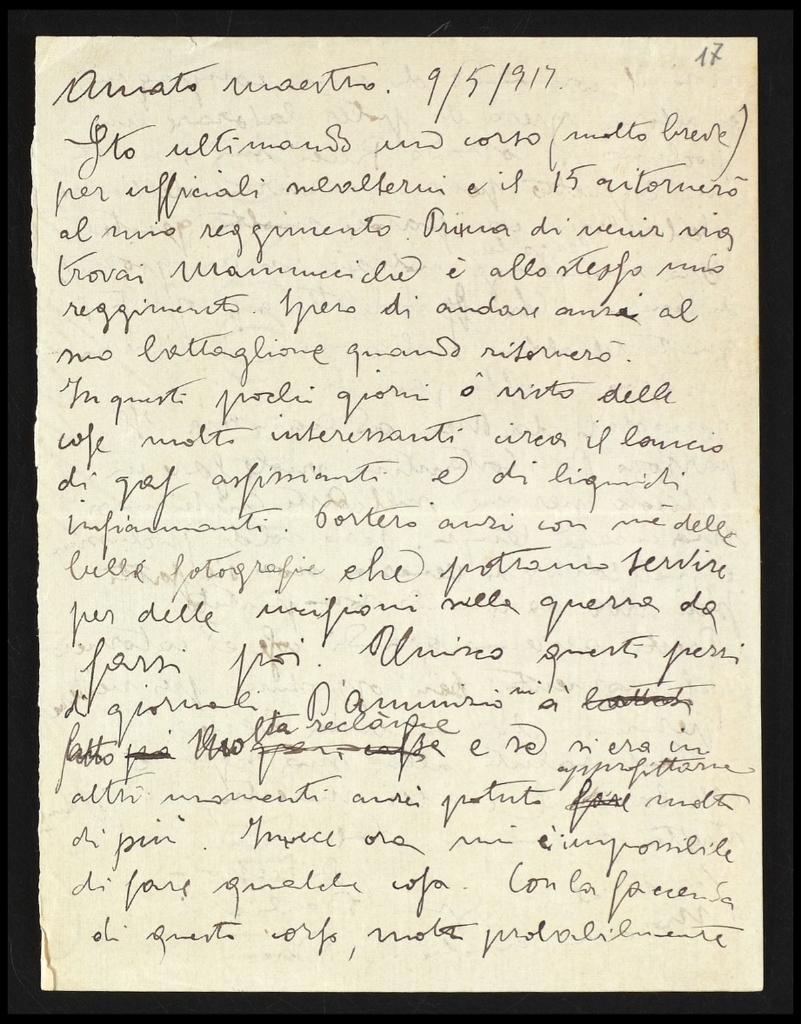 17
Amato maestro. 9/5/917.
Sto ultimando un corso (molto breve)
per ufficiali subalterni e il 15 ritornerò
al mio reggimento. Prima di venir via
trovai Mannucci che è allo stesso mio
reggimento. Spero di andare anzi al
suo battaglione quando ritornerò.
In questi pochi giorni ò visto delle
cose molto interessanti circa il lancio
di gas asfissianti e di liquidi
infiammanti. Porterò anzi con me delle
belle fotografie che potranno servire
per delle incisioni sulla guerra da
farsi poi. Unisco questi pezzi
di giornali. D'Annunzio mi à
fatto molta reclame e se si era in
altri momenti avrei potuto approfittarne molto
di più. Invece ora mi è impossibile
di fare qualche cosa. Con la faccenda
di questo corso, molto probabilmente